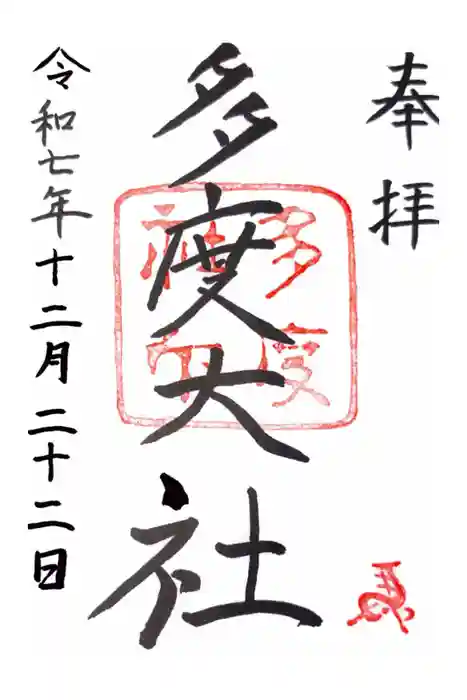 奉拝
多度大社
令和七年十二月二十二日
多度
社印